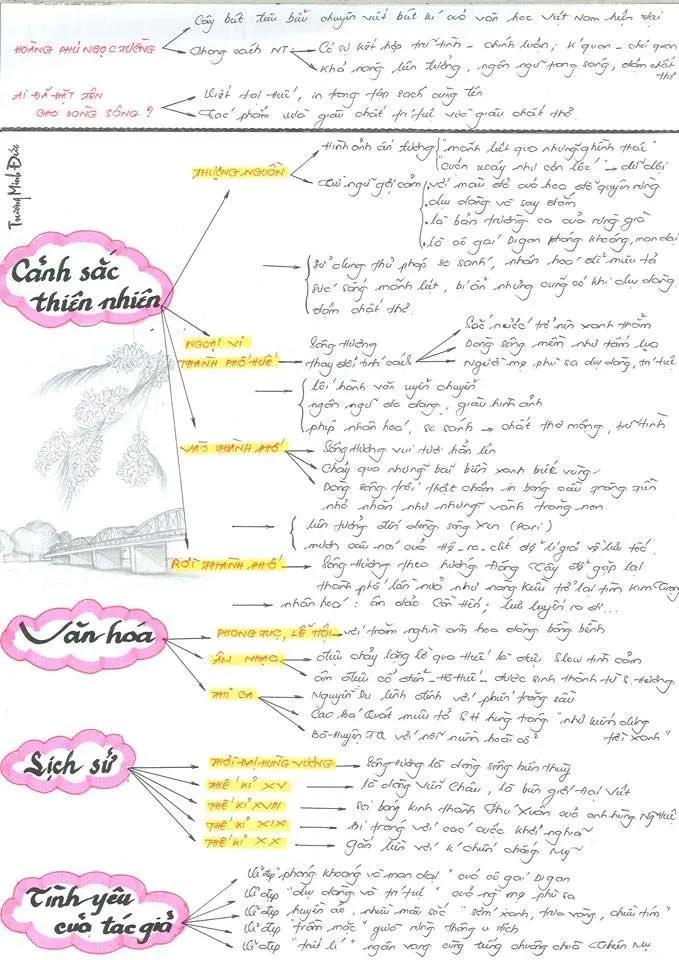 Cây bút tiêu biểu chuyên viết bút kí của văn học Việt Nam hiện đại
HOÀNG PHỦ NGỌC TƯỜNG
Phong cách NT → Có sự kết hợp trữ tình - chính luận; k quan - chủ quan
Khả năng liên tưởng, ngôn ngữ trong sáng, đậm chất thơ
AI ĐÃ ĐẶT TÊN CHO DÒNG SÔNG?
Viết tại Huế, in trong tập sách cùng tên
Tác phẩm vừa giàu chất trí tuệ vừa giàu chất thơ.
Trương Minh Đức
Cảnh sắc thiên nhiên
THƯỢNG NGUỒN
Hình ảnh ấn tượng "mãnh liệt qua những ghềnh thác"
"cuộn xoáy như cơn lốc" → dữ dội
Từ ngữ gợi cảm
với màu đỏ của hoa đỗ quyên rừng
dịu dàng và say đắm
là bản trường ca của rừng già
là cô gái Digan phóng khoáng, man dại
sử dụng thủ pháp so sánh, nhân hoá để miêu tả
sức sống mãnh liệt, bí ẩn nhưng cũng có khi dịu dàng.
đậm chất thơ.
NGOẠI VI THÀNH PHỐ HUẾ
Sông Hương thay đổi tính cách
Sắc nước trở nên xanh thẳm
Dòng sông mềm như tấm lụa
Người mẹ phù sa dịu dàng, trí tuệ
lối hành văn uyển chuyển
ngôn ngữ đa dạng, giàu hình ảnh
phép nhân hoá, so sánh → chất thơ mộng, trữ tình
VÀO THÀNH PHỐ
Sông Hương vui tươi hẳn lên
Chảy qua những bãi biền xanh biếc vùng
Dòng sông trôi thật chậm in bóng cầu Trường Tiền
nhỏ nhắn như những vành trăng non
liên tưởng đến dòng sông Xen (Pari)
mượn câu nói của Hê-ra-clít để lí giải về lưu tốc.
RỜI THÀNH PHỐ
Sông Hương theo hướng Đông Tây để gặp lại
thành phố lần nữa như nàng Kiều trở lại tìm Kim Trọng
nhân hoá: ôm đảo Cồn Hến; lưu luyến ra đi...
Văn hóa
PHONG TỤC, LỄ HỘI → với trăm nghìn ánh hoa đăng bồng bềnh
ÂM NHẠC
điệu chảy lặng lờ qua Huế là điệu Slow tình cảm
âm điệu cổ điển - Hò Huế - được sinh thành từ S. Hương
THI CA
Nguyễn Du lênh đênh với phiến trăng sầu
Cao Bá Quát miêu tả SH hùng tráng "như kiếm dựng trời xanh"
Bà Huyện TQ với nỗi niềm hoài cổ
Lịch sử
THỜI ĐẠI HÙNG VƯƠNG → Sông Hương là dòng sông biên thùy
THẾ KỈ XV → là dòng Viễn Châu, là biên giới Đại Việt
THẾ KỈ XVIII → Soi bóng kinh thành Phú Xuân của anh hùng Ng Huệ
THẾ KỈ XIX → Bi tráng với các cuộc khởi nghĩa
THẾ KỈ XX → gắn liền với k/chiến chống Mỹ
Tình yêu của tác giả
Vẻ đẹp "phóng khoáng và man dại" của cô gái Digan
Vẻ đẹp "dịu dàng và trí tuệ" của ng mẹ phù sa
Vẻ đẹp huyền ảo, nhiều màu sắc "sớm xanh, trưa vàng, chiều tím"
Vẻ đẹp "trầm mặc" giữa rừng thông u tịch
Vẻ đẹp "triết lí" ngân vang cùng tiếng chuông chùa Thiên Mụ